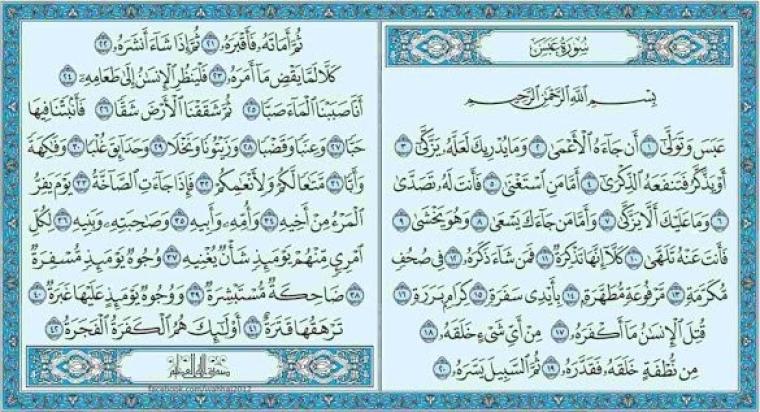 سُورَةُ عَبَسَ
بِسْمِ اللَّهِ الرَّحْمَٰنِ الرَّحِيمِ
عَبَسَ وَتَوَلَّىٰ ١ أَن جَاءَهُ الْأَعْمَىٰ ٢ وَمَا يُدْرِيكَ لَعَلَّهُ يَزَّكَّىٰ ٣
أَوْ يَذَّكَّرُ فَتَنفَعَهُ الذِّكْرَىٰ ٤ أَمَّا مَنِ اسْتَغْنَىٰ ٥ فَأَنتَ لَهُ تَصَدَّىٰ
٦ وَمَا عَلَيْكَ أَلَّا يَزَّكَّىٰ ٧ وَأَمَّا مَن جَاءَكَ يَسْعَىٰ ٨ وَهُوَ يَخْشَىٰ ٩
فَأَنتَ عَنْهُ تَلَهَّىٰ ١٠ كَلَّا إِنَّهَا تَذْكِرَةٌ ١١ فَمَن شَاءَ ذَكَرَهُ ١٢ فِي صُحُفٍ
مُّكَرَّمَةٍ ١٣ مَّرْفُوعَةٍ مُّطَهَّرَةٍ ١٤ بِأَيْدِي سَفَرَةٍ ١٥ كِرَامٍ بَرَرَةٍ ١٦
قُتِلَ الْإِنسَانُ مَا أَكْفَرَهُ ١٧ مِنْ أَيِّ شَيْءٍ خَلَقَهُ ١٨
مِن نُّطْفَةٍ خَلَقَهُ فَقَدَّرَهُ ١٩ ثُمَّ السَّبِيلَ يَسَّرَهُ ٢٠
ثُمَّ أَمَاتَهُ فَأَقْبَرَهُ ٢١ ثُمَّ إِذَا شَاءَ أَنشَرَهُ ٢٢
كَلَّا لَمَّا يَقْضِ مَا أَمَرَهُ ٢٣ فَلْيَنظُرِ الْإِنسَانُ إِلَىٰ طَعَامِهِ ٢٤
أَنَّا صَبَبْنَا الْمَاءَ صَبًّا ٢٥ ثُمَّ شَقَقْنَا الْأَرْضَ شَقًّا ٢٦ فَأَنبَتْنَا فِيهَا
حَبًّا ٢٧ وَعِنَبًا وَقَضْبًا ٢٨ وَزَيْتُونًا وَنَخْلًا ٢٩ وَحَدَائِقَ غُلْبًا ٣٠ وَفَاكِهَةً
وَأَبًّا ٣١ مَّتَاعًا لَّكُمْ وَلِأَنْعَامِكُمْ ٣٢ فَإِذَا جَاءَتِ الصَّاخَّةُ ٣٣ يَوْمَ يَفِرُّ
الْمَرْءُ مِنْ أَخِيهِ ٣٤ وَأُمِّهِ وَأَبِيهِ ٣٥ وَصَاحِبَتِهِ وَبَنِيهِ ٣٦ لِكُلِّ
امْرِئٍ مِّنْهُمْ يَوْمَئِذٍ شَأْنٌ يُغْنِيهِ ٣٧ وُجُوهٌ يَوْمَئِذٍ مُّسْفِرَةٌ
٣٨ ضَاحِكَةٌ مُّسْتَبْشِرَةٌ ٣٩ وَوُجُوهٌ يَوْمَئِذٍ عَلَيْهَا غَبَرَةٌ ٤٠
تَرْهَقُهَا قَتَرَةٌ ٤١ أُولَٰئِكَ هُمُ الْكَفَرَةُ الْفَجَرَةُ ٤٢
صدق الله العظيم
facebook.com/wahhaj2012